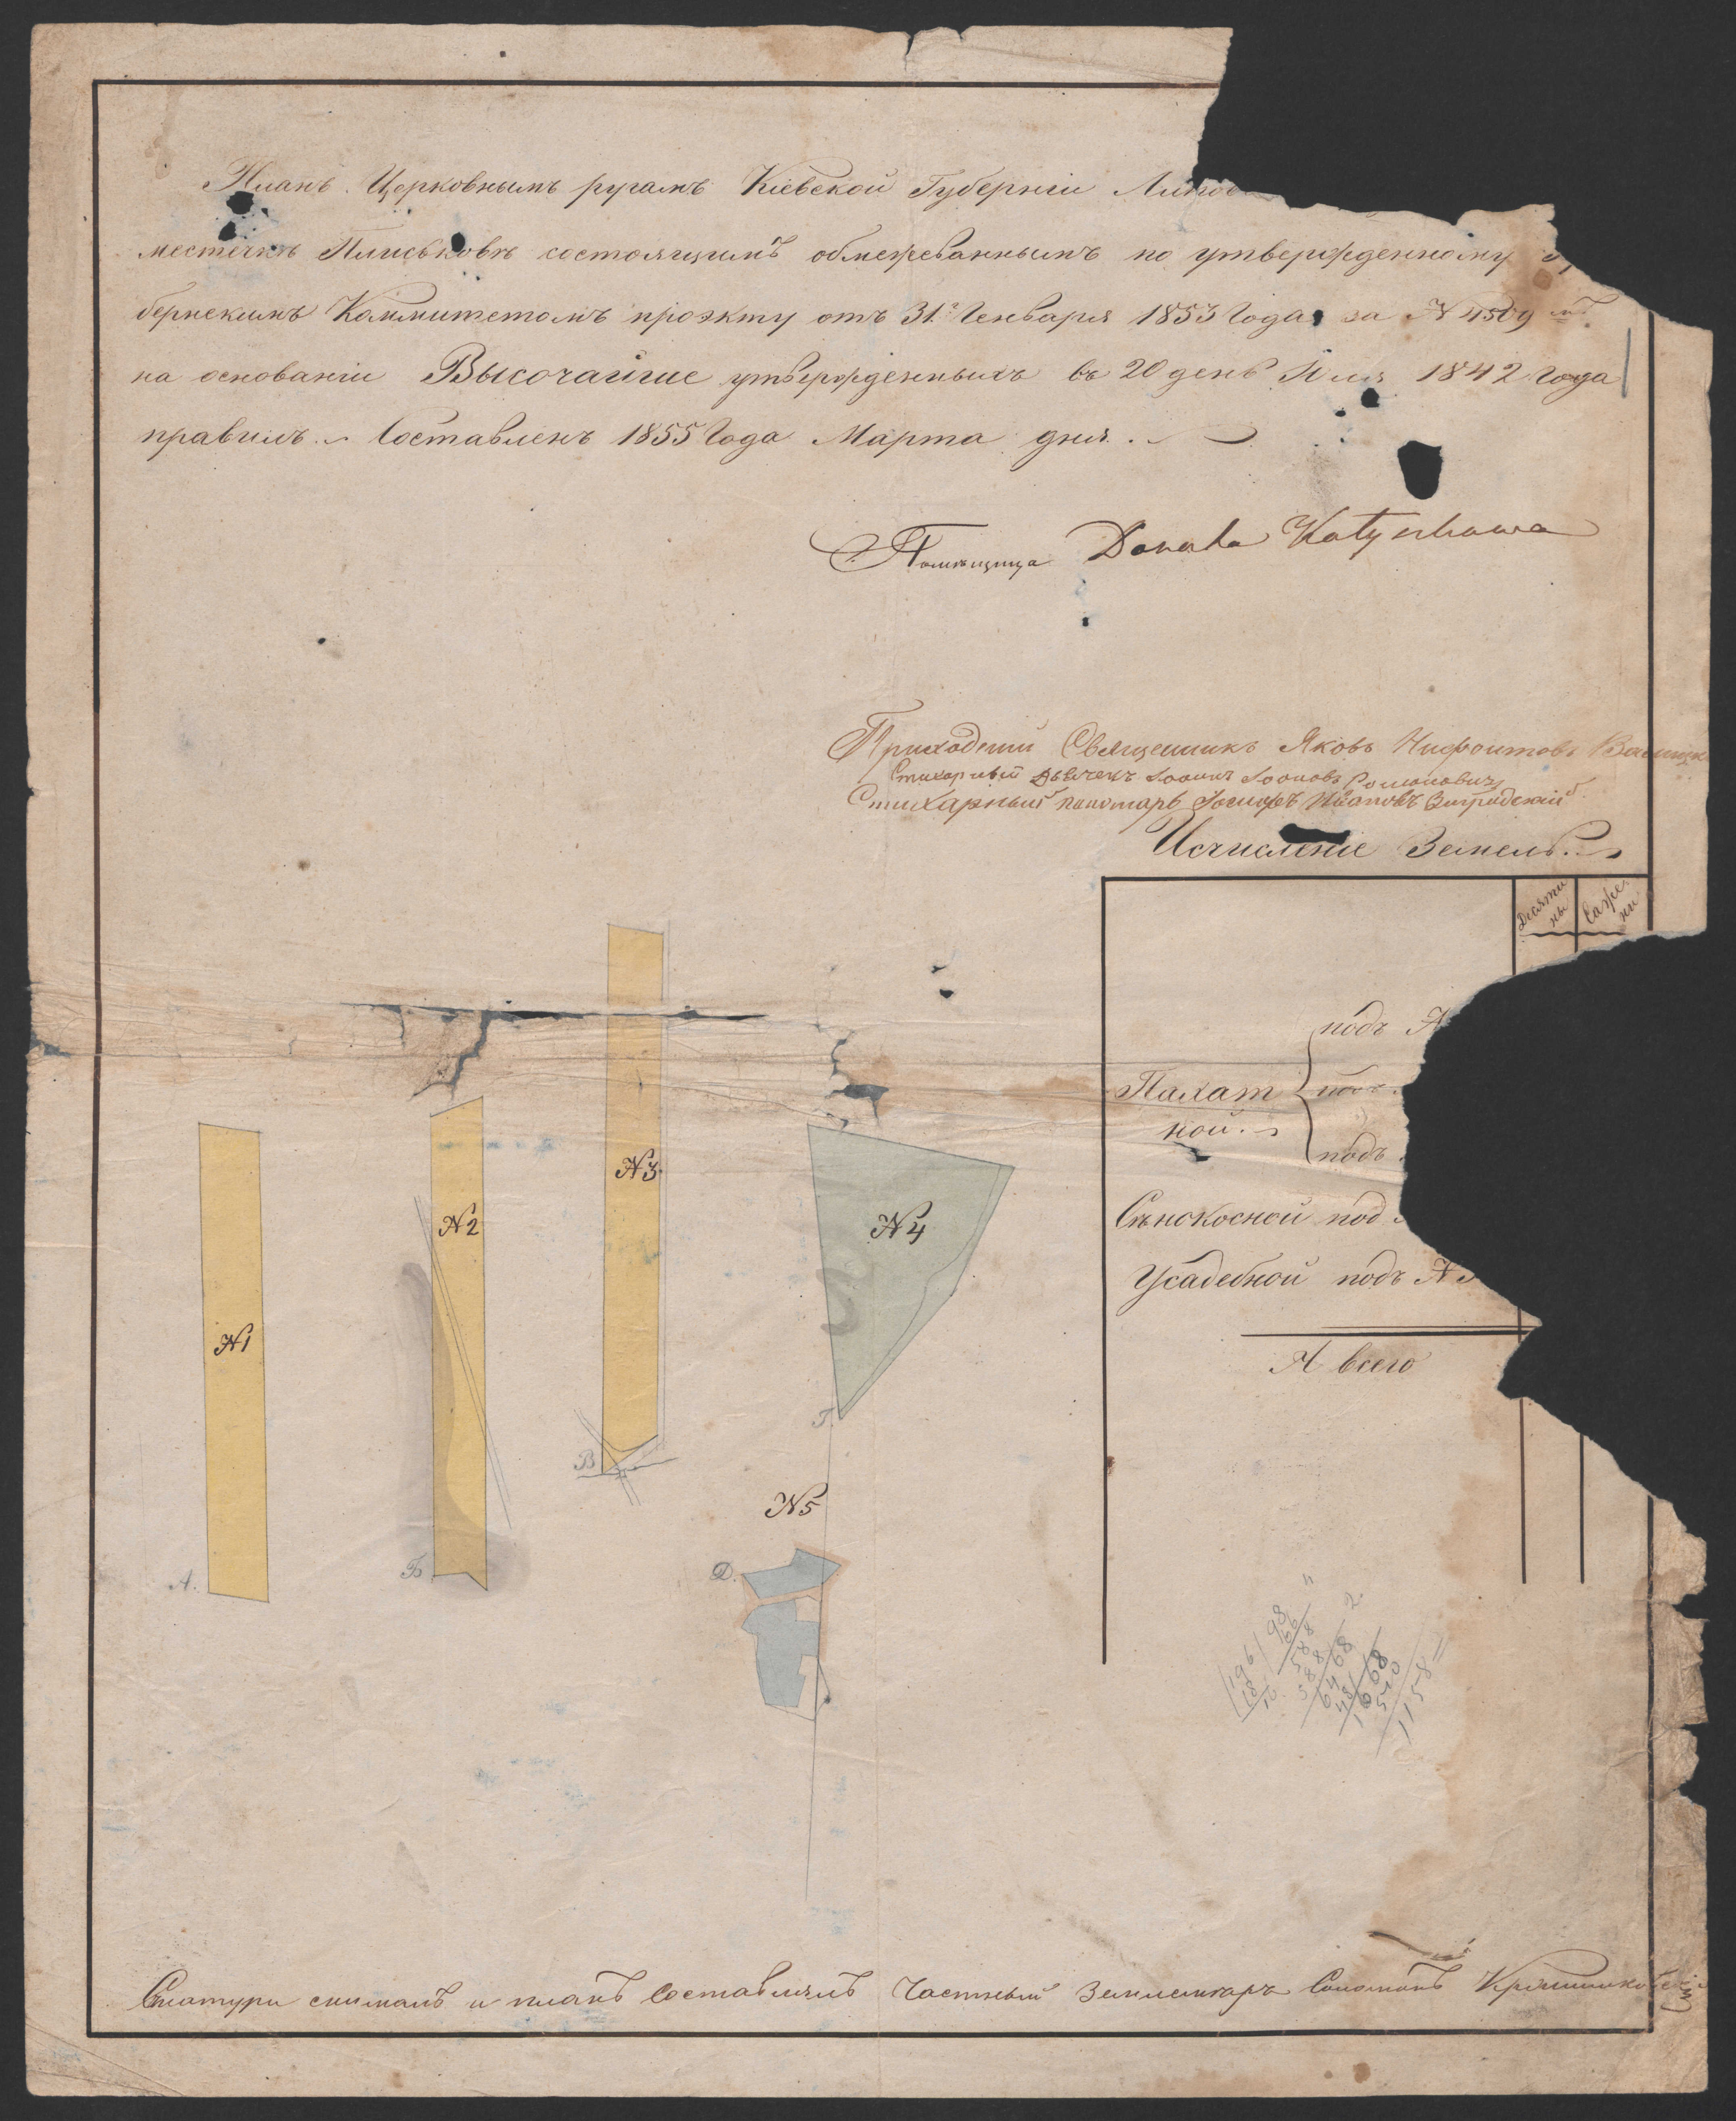 Планъ Церковнымъ ругамъ Кіевской Губерніи Липов
местечкѣ Плисковѣ состоящимъ обмежеваннымъ по утвержденному
бернскимъ Коммитетомъ проэкту отъ 31.го Генваря 1853 Года за № 4509
на основаніи Высочайше утвержденныхъ въ 20 день Юля 1842 Года
правилъ. Составленъ 1855 Года Марта дня.
Помѣщица
Приходскій Священникъ Яковъ
Стихарный Дьячекъ Іоаннъ Іоановъ Романовичъ
Стихарный пономарь Іосифъ Ивановъ
Исчисленіе Земель.
Десяти
ны
Саже
ни
подъ №
Пахат
ной.
подъ
подъ
Сѣнокосной под
Усадебной подъ №
А всего
№1
№2
№3
№4
№5
А.
Б
В
Г
Д.
196
98
66
588
588
6468
1158
Снатури снималъ и планъ Составлялъ Частный Землемѣръ Соломонъ